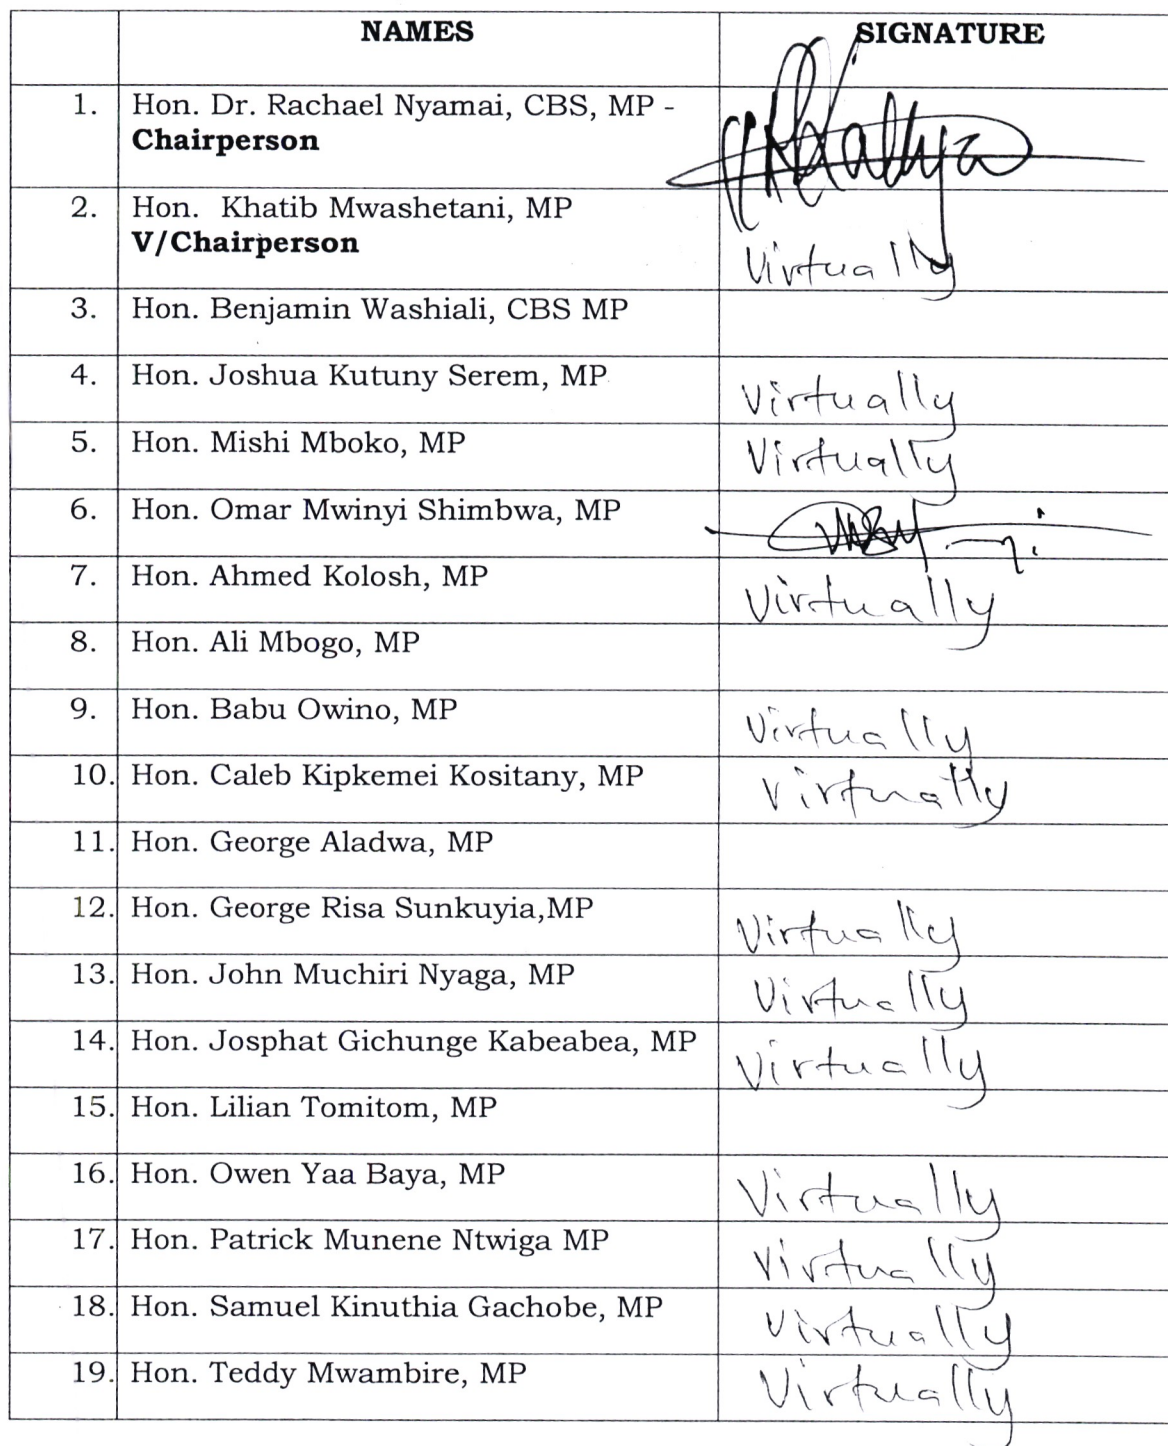 NAMES SIGNATURE
1. Hon. Dr. Rachael Nyamai, CBS, MP -
Chairperson
2. Hon. Khatib Mwashetani, MP
V/Chairperson Virtually
3. Hon. Benjamin Washiali, CBS MP
4. Hon. Joshua Kutuny Serem, MP Virtually
5. Hon. Mishi Mboko, MP Virtually
6. Hon. Omar Mwinyi Shimbwa, MP
7. Hon. Ahmed Kolosh, MP Virtually
8. Hon. Ali Mbogo, MP
9. Hon. Babu Owino, MP Virtually
10. Hon. Caleb Kipkemei Kositany, MP Virtually
11. Hon. George Aladwa, MP
12. Hon. George Risa Sunkuyia,MP Virtually
13. Hon. John Muchiri Nyaga, MP Virtually
14. Hon. Josphat Gichunge Kabeabea, MP Virtually
15. Hon. Lilian Tomitom, MP
16. Hon. Owen Yaa Baya, MP Virtually
17. Hon. Patrick Munene Ntwiga MP Virtually
18. Hon. Samuel Kinuthia Gachobe, MP Virtually
19. Hon. Teddy Mwambire, MP Virtually